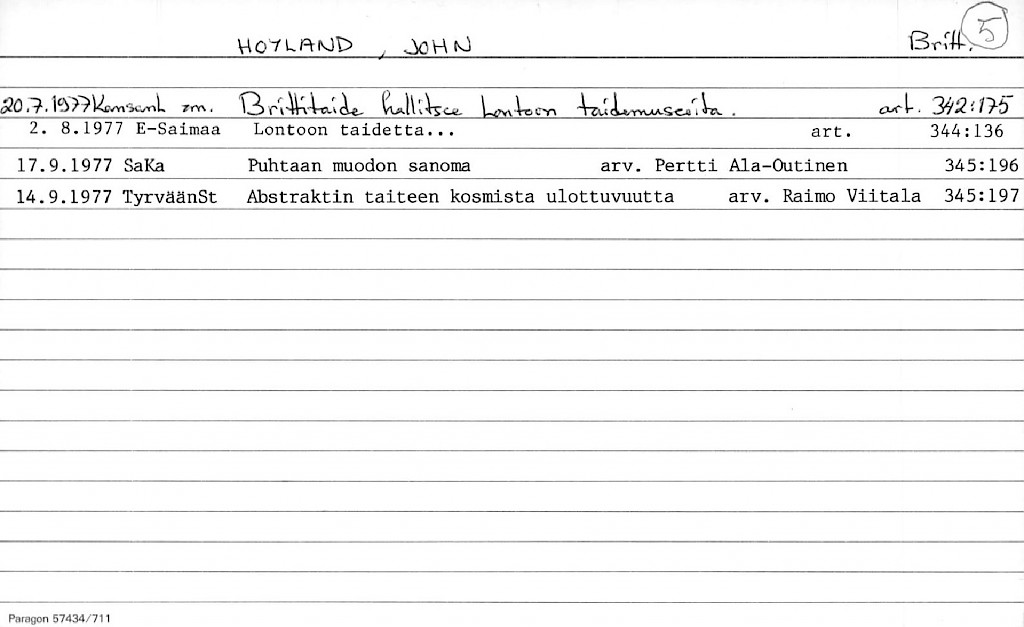 HOYLAND, JOHN Britt. 5
20.7.1977 Kansanl zm. Brittitaide hallitsee Lontoon taidemuseoita. art. 342:175
2. 8.1977 E-Saimaa Lontoon taidetta... art. 344:136
17.9.1977 SaKa Puhtaan muodon sanoma arv. Pertti Ala-Outinen 345:196
14.9.1977 TyrväänSt Abstraktin taiteen kosmista ulottuvuutta arv. Raimo Viitala 345:197
Paragon 57434/711